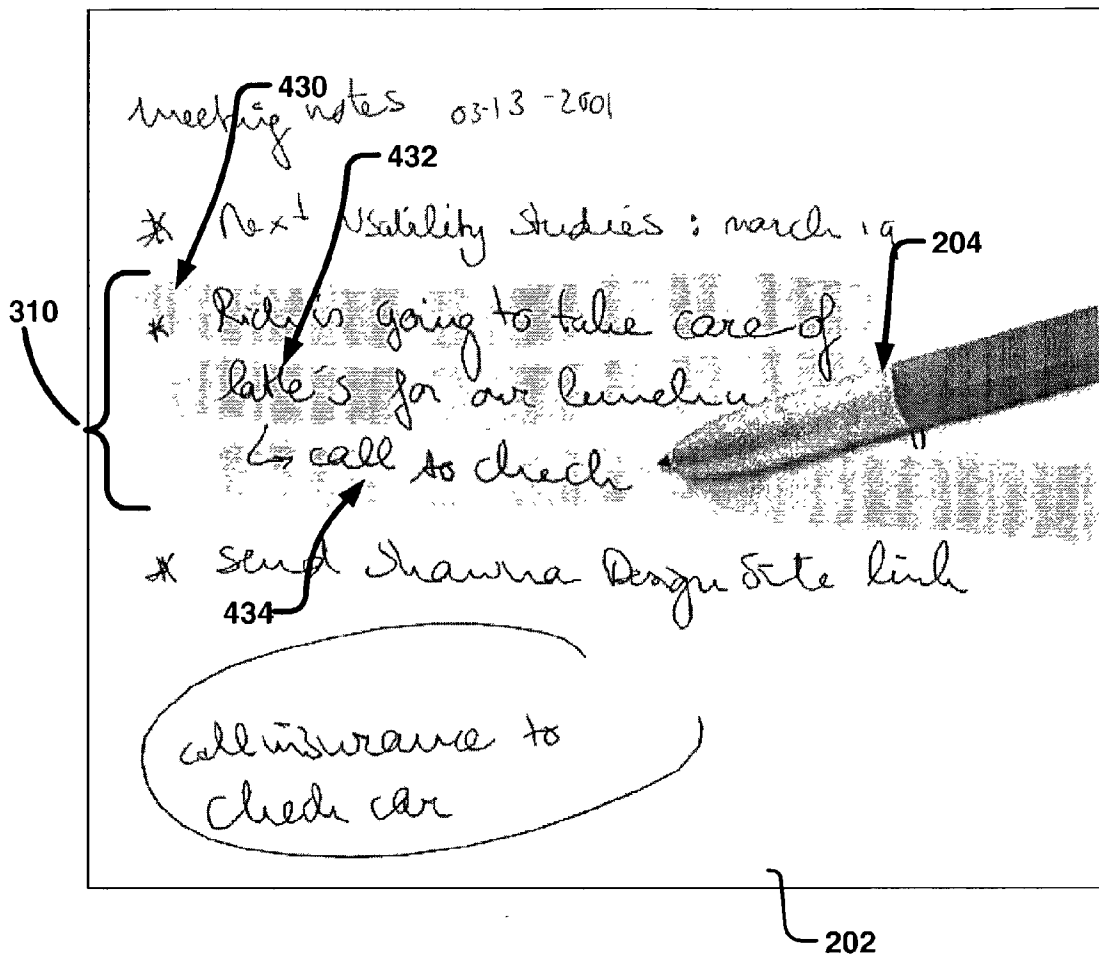 430
meeting notes 03-13-2001
432
* Next Usability Studies : march 19
204
310
* Rich is going to take care of
latte's for our luncheon
↳ call to check
* send Shawna Design Site link
434
call insurance to
check car
202